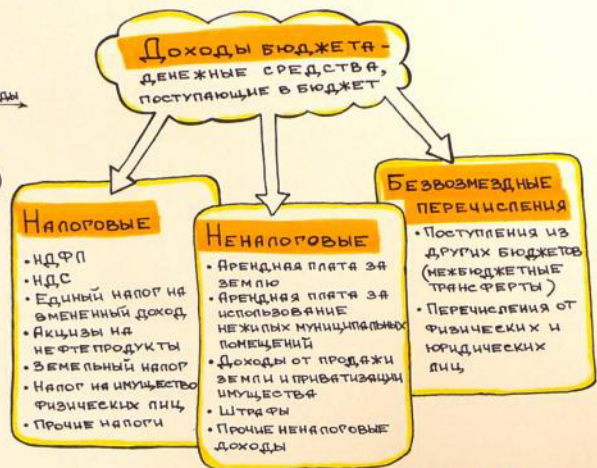 Доходы бюджета -
денежные средства,
поступающие в бюджет
Налоговые
• НДФЛ
• НДС
• Единый налог на
вмененный доход
• Акцизы на
нефтепродукты
• Земельный налог
• Налог на имущество
физических лиц
• Прочие налоги
Неналоговые
• Арендная плата за
землю
• Арендная плата за
использование
нежилых муниципальных
помещений
• Доходы от продажи
земли и приватизации
имущества
• Штрафы
• Прочие неналоговые
доходы
Безвозмездные
перечисления
• Поступления из
других бюджетов
(межбюджетные
трансферты)
• Перечисления от
физических и
юридических
лиц